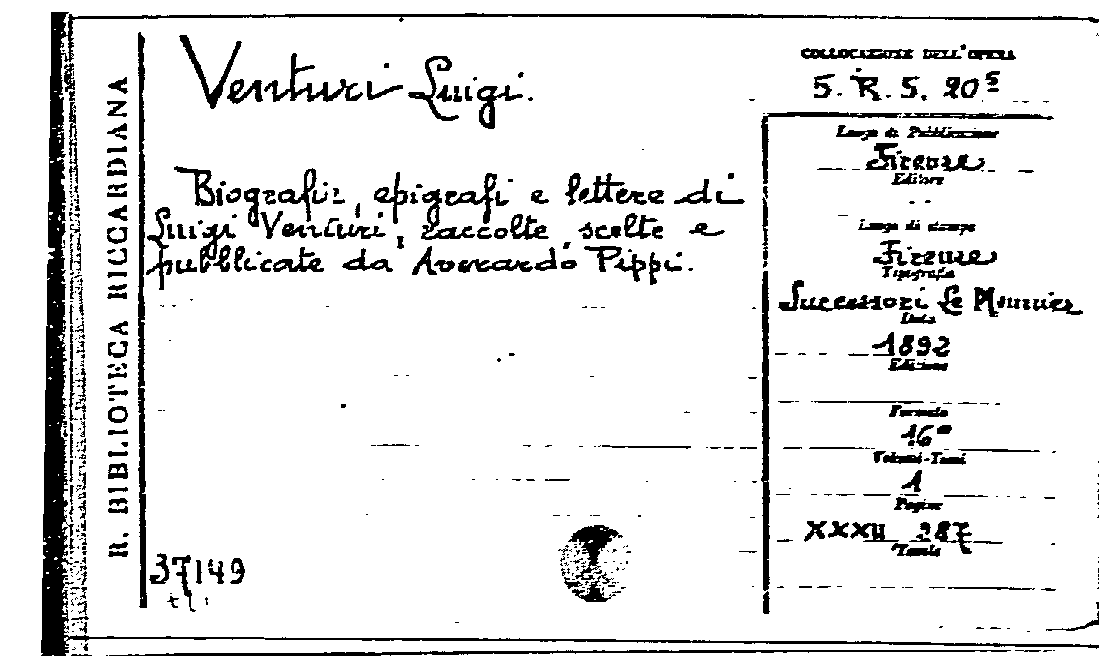 R. BIBLIOTECA RICCARDIANA
Venturi Luigi.
Biografie, epigrafi e lettere di
Luigi Venturi, raccolte, scelte e
pubblicate da Averardo Pippi.
37149
COLLOCAZIONE DELL'OPERA
5. R. 5. 20⁵
Luogo di Pubblicazione
Firenze
Editore
Luogo di stampa
Firenze
Tipografia
Successori Le Monnier
Data
1892
Edizione
Formato
16°
Volumi-Tomi
1
Pagine
XXXII 287
Tavole